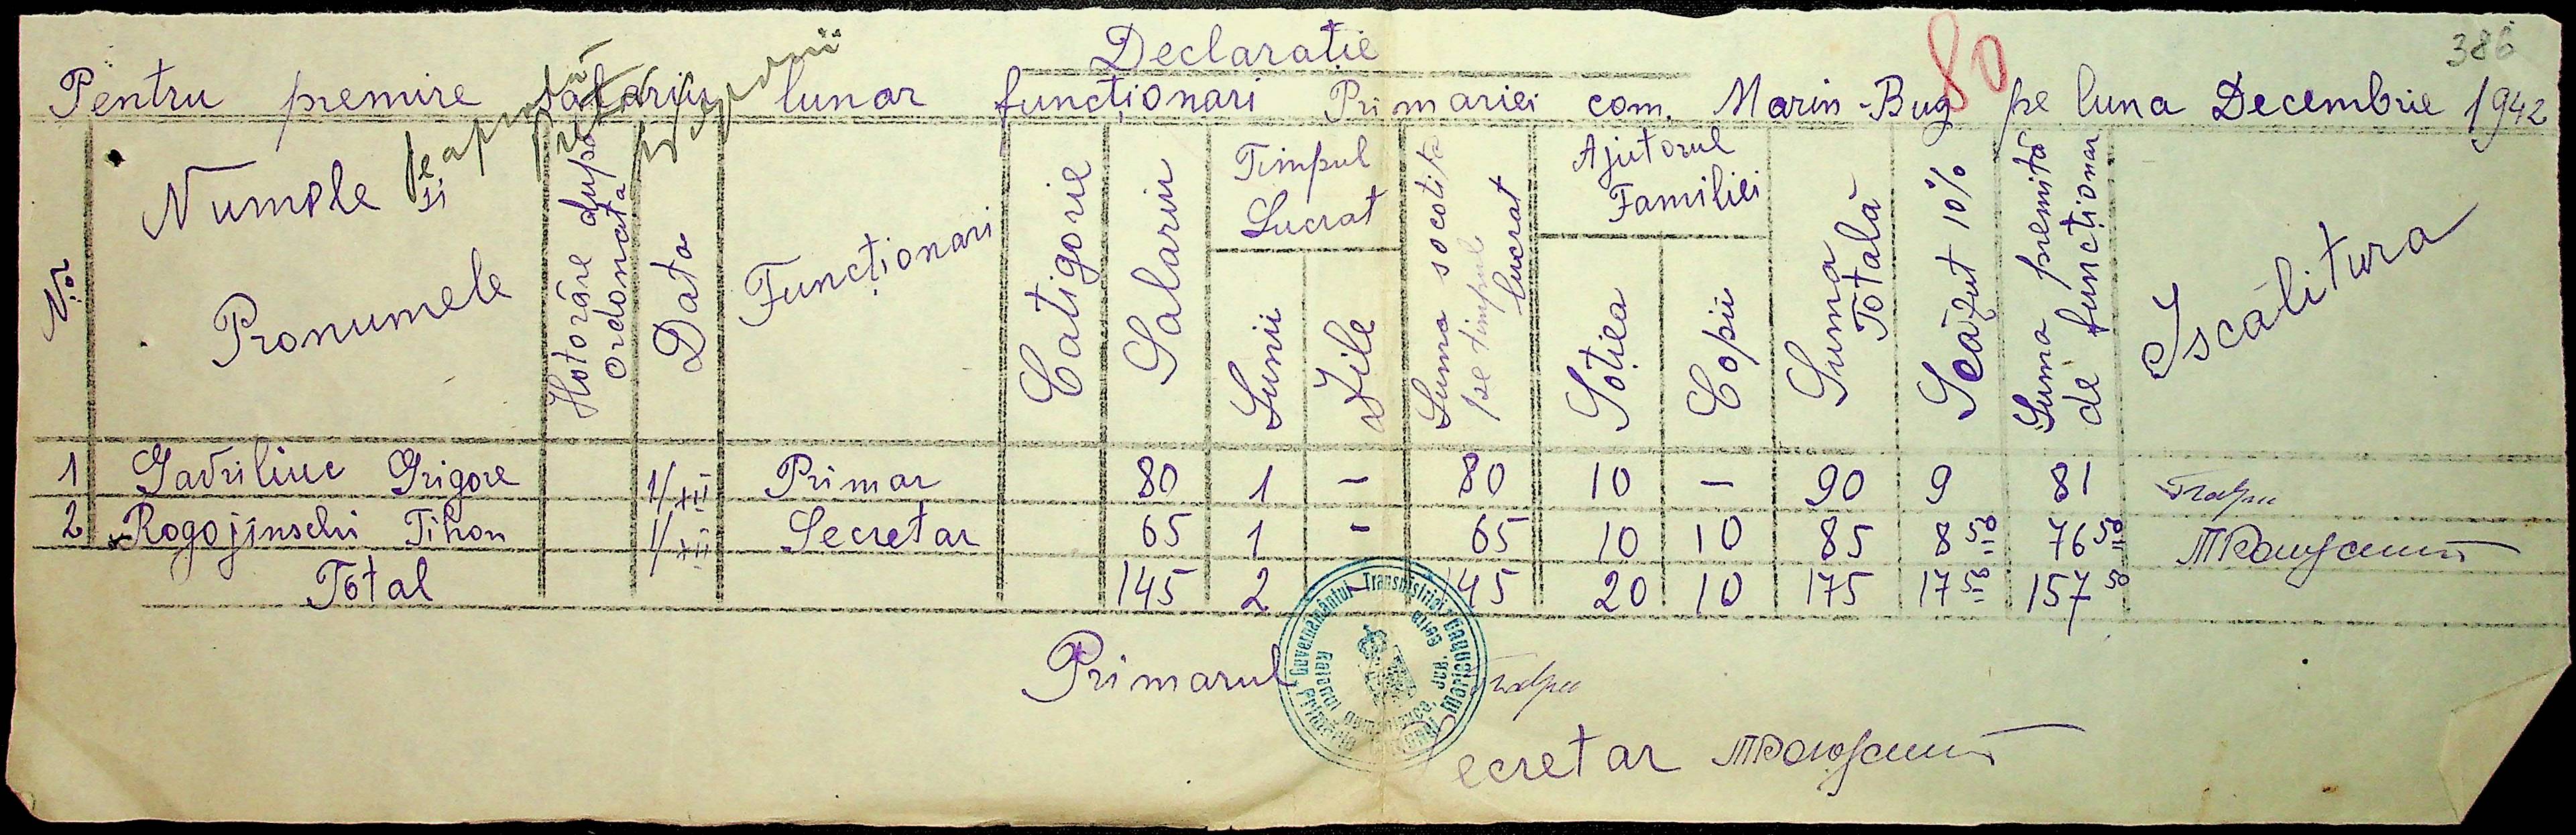 386
80
Declarație
Pentru premire salariu lunar funcționari Primariei com. Marin-Bug pe luna Decembrie 1942
Se aprobă
Nor
Numele și Pronumele
Hotorâre după ordonanta
Data
Funcționari
Catigorie
Salariu
Timpul Lucrat
Lunii
Zile
Suma socotita pe timpul lucrat
Ajutorul Familiei
Soțiea
Copii
Suma Totală
Scăzut 10%
Suma premită de funcționar
Iscălitura
1 Gavriliuc Grigore 1/XII Primar 80 1 – 80 10 – 90 9 81
2 Rogojinschi Tihon 1/XII Secretar 65 1 - 65 10 10 85 8 50 76 50
Total 145 2 - 145 20 10 175 17 50 157 50
Primarul
Secretar
Guvernământul Transnistriei